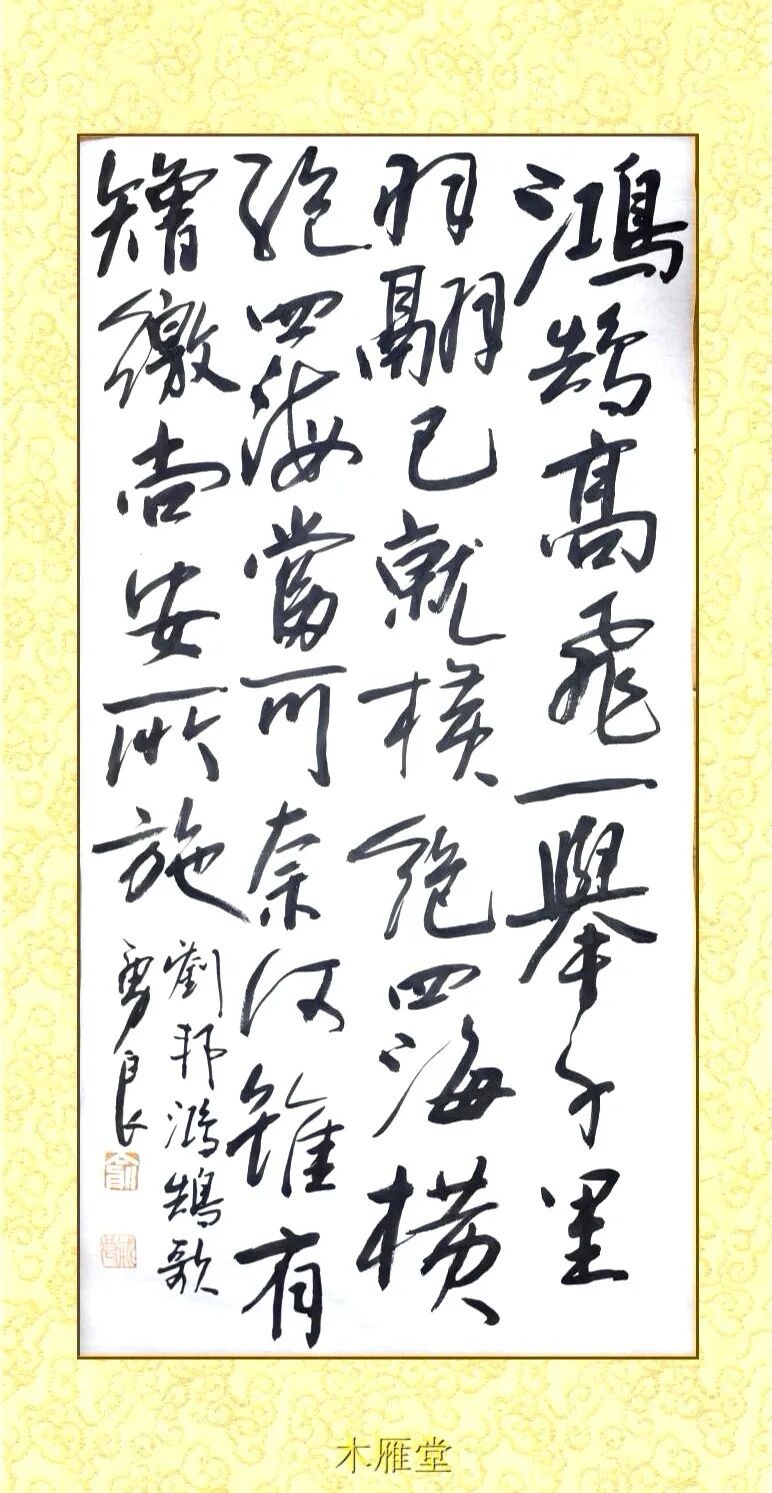 鴻鵠高飛一舉千里
羽翮已就橫絕四海橫
絕四海當可奈何雖有
矰繳尚安所施
劉邦鴻鵠歌
勇良
木雁堂